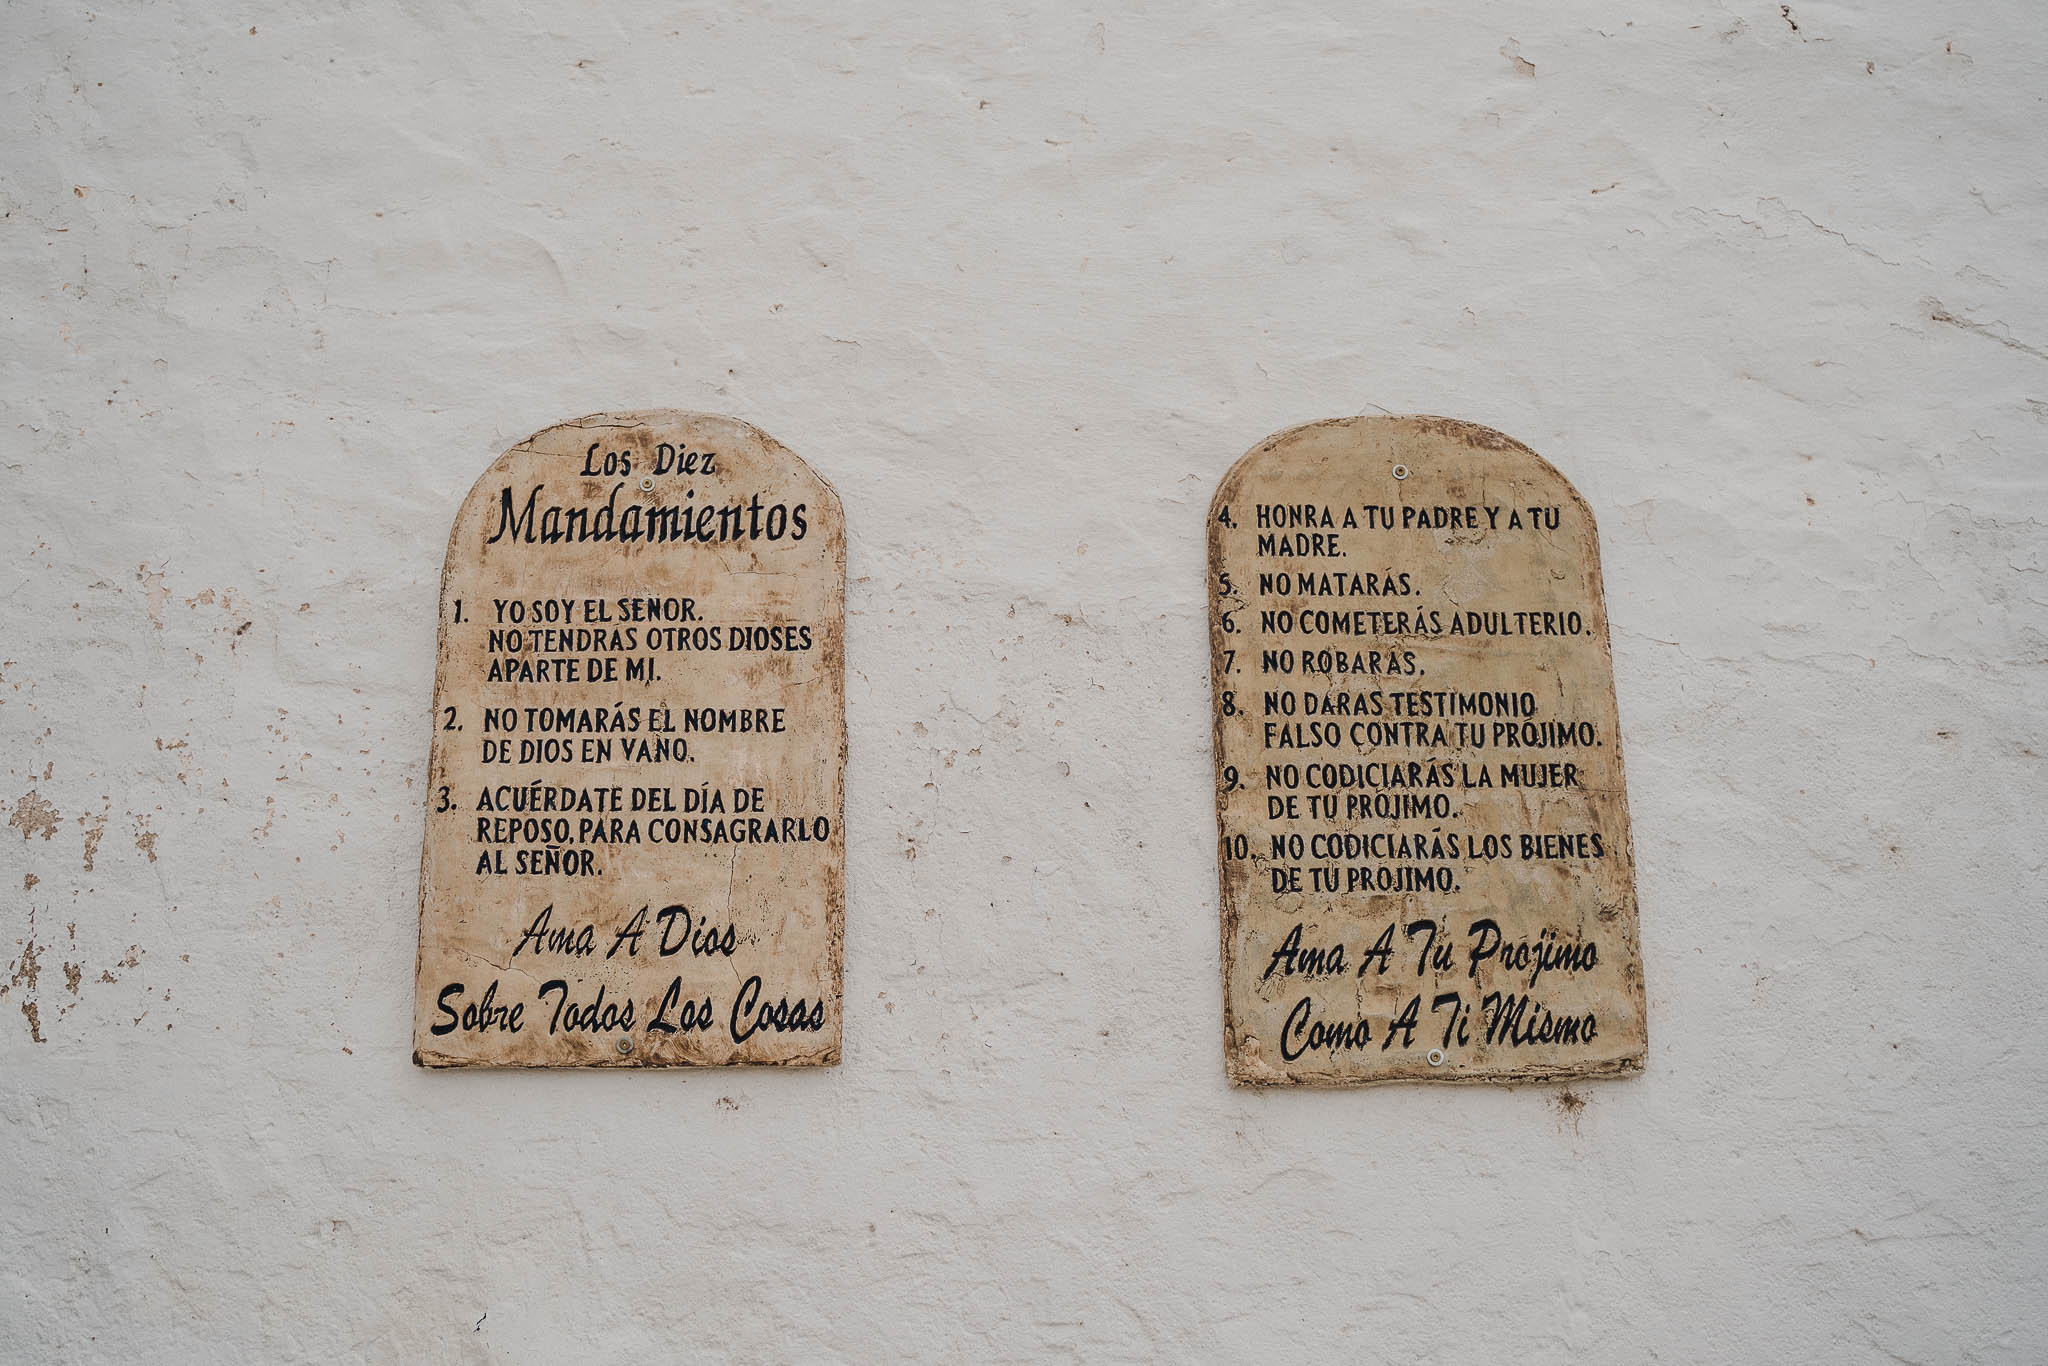 Los Diez
Mandamientos
1. YO SOY EL SEÑOR.
NO TENDRÁS OTROS DIOSES
APARTE DE MI.
2. NO TOMARÁS EL NOMBRE
DE DIOS EN VANO.
3. ACUÉRDATE DEL DÍA DE
REPOSO, PARA CONSAGRARLO
AL SEÑOR.
Ama A Dios
Sobre Todos Las Cosas
4. HONRA A TU PADRE Y A TU
MADRE.
5. NO MATARÁS.
6. NO COMETERÁS ADULTERIO.
7. NO ROBARÁS.
8. NO DARAS TESTIMONIO
FALSO CONTRA TU PRÓJIMO.
9. NO CODICIARÁS LA MUJER
DE TU PRÓJIMO.
10. NO CODICIARÁS LOS BIENES
DE TU PRÓJIMO.
Ama A Tu Prójimo
Como A Ti Mismo